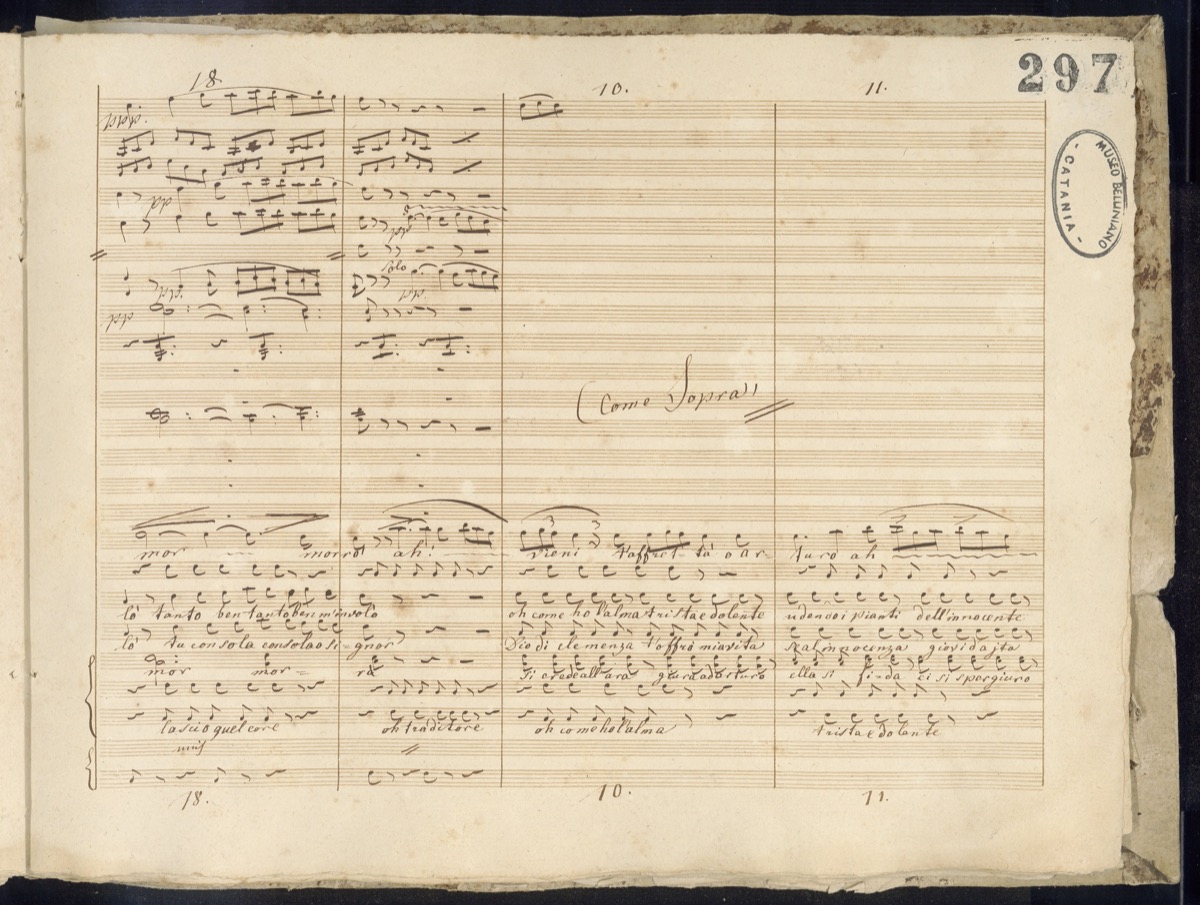 18. 10. 11. 297
MUSEO BELLINIANO
- CATANIA -
Solo
(Come Sopra)
mor morrò ah! vieni t'affret tà o ar- turo ah
lò tanto ben tanto ben m'involò oh come ho l'alma trista e dolente udendo i pianti dell'innocente
lò tu consola consola o si-gnor Dio di clemenza t'offro mia vita se all'innocenza giovi d'aita
mor mor- rà Si crede all'ara giura ad arturo ella si fi-da ei si spergiuro
lascio quel core oh traditore oh come ho l'alma trista e dolente
unis
18. 10. 11.